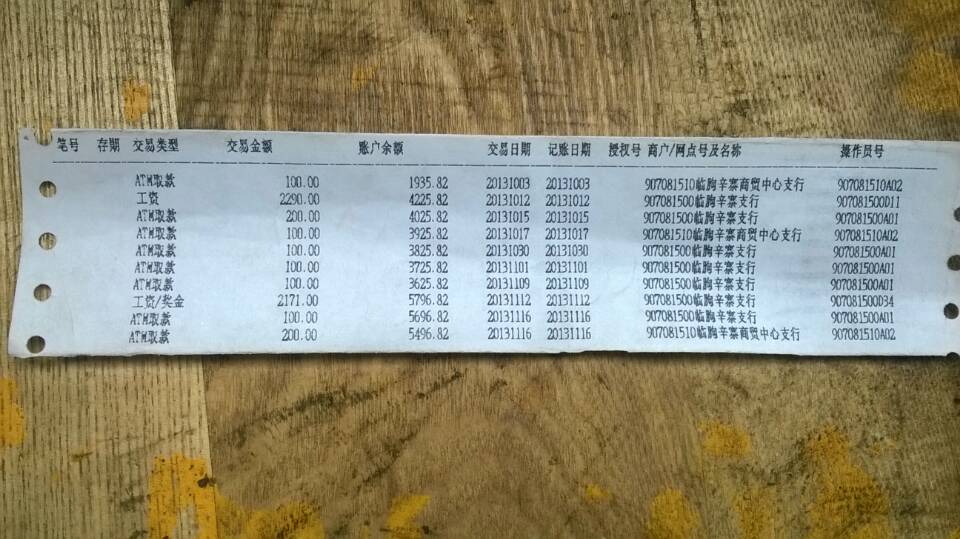 笔号 存期 交易类型 交易金额 账户余额 交易日期 记账日期 授权号 商户/网点号及名称 操作员号
ATM取款 100.00 1935.82 20131003 20131003 907081510临朐辛寨商贸中心支行 907081510A02
工资 2290.00 4225.82 20131012 20131012 907081500临朐辛寨支行 907081500D11
ATM取款 200.00 4025.82 20131015 20131015 907081500临朐辛寨支行 907081500A01
ATM取款 100.00 3925.82 20131017 20131017 907081510临朐辛寨商贸中心支行 907081510A02
ATM取款 100.00 3825.82 20131030 20131030 907081500临朐辛寨支行 907081500A01
ATM取款 100.00 3725.82 20131101 20131101 907081500临朐辛寨支行 907081500A01
ATM取款 100.00 3625.82 20131109 20131109 907081500临朐辛寨支行 907081500A01
工资/奖金 2171.00 5796.82 20131112 20131112 907081500临朐辛寨支行 907081500D34
ATM取款 100.00 5696.82 20131116 20131116 907081500临朐辛寨支行 907081500A01
ATM取款 200.00 5496.82 20131116 20131116 907081510临朐辛寨商贸中心支行 907081510A02